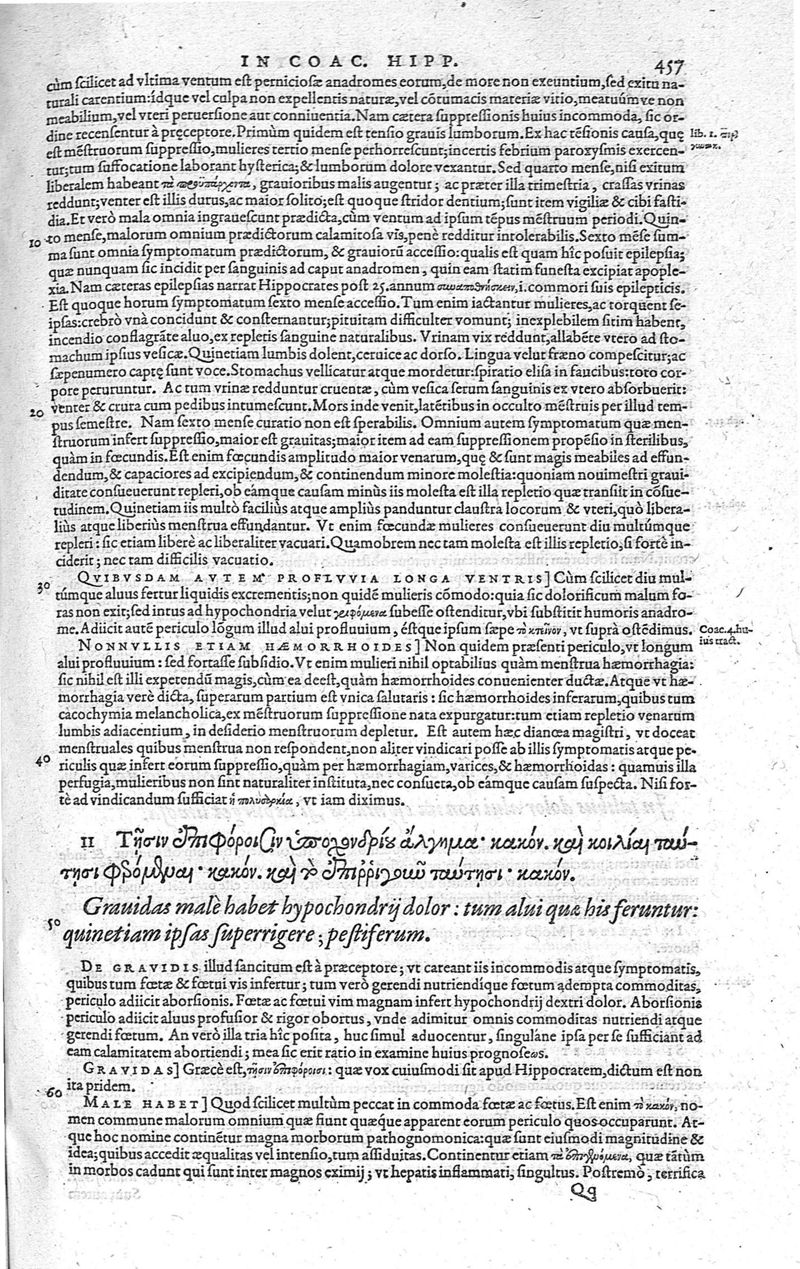 IN COAC. HIPP. 457
cùm scilicet ad vltima ventum est perniciosæ anadromes eorum, de more non exeuntium, sed exitu na-
turali carentium: idque vel culpa non expellentis naturæ, vel cõtumacis materiæ vitio, meatuúmve non
meabilium, vel vteri peruersione aut conniuentia. Nam cætera suppressionis huius incommoda, sic or-
dine recensentur à pręceptore. Primùm quidem est tensio grauis lumborum. Ex hac tẽsionis causa, quę
lib. 1.
est mẽstruorum suppressio, mulieres tertio mense perhorrescunt; incertis febrium paroxysmis exercen-
tur; tum suffocatione laborant hysterica; & lumborum dolore vexantur. Sed quarto mense, nisi exitum
liberalem habeant , grauioribus malis augentur; ac præter illa trimestria, crassas vrinas
reddunt; venter est illis durus, ac maior solito; est quoque stridor dentium; sunt item vigiliæ & cibi fasti-
dia. Et verò mala omnia ingrauescunt prædicta, cùm ventum ad ipsum tẽpus mẽstruum periodi. Quin-
10 to mense, malorum omnium prædictorum calamitosa vis, penè redditur intolerabilis. Sexto mẽse sum-
ma sunt omnia symptomatum prædictorum, & grauiorũ accessio: qualis est quam hîc posuit epilepsia;
quæ nunquam sic incidit per sanguinis ad caput anadromen, quin eam statim funesta excipiat apople-
xia. Nam cæteras epilepsias narrat Hippocrates post 25. annum συναποθνήσκειν, i. commori suis epilepticis.
Est quoque horum symptomatum sexto mense accessio. Tum enim iactantur mulieres, ac torquent se-
ipsas: crebrò vnà concidunt & consternantur; pituitam difficulter vomunt; inexplebilem sitim habent,
incendio conflagrãte aluo, ex repletis sanguine naturalibus. Vrinam vix reddunt, allabẽte vtero ad sto-
machum ipsius vesicæ. Quinetiam lumbis dolent, ceruice ac dorso. Lingua velut fræno compescitur; ac
sæpenumero captę sunt voce. Stomachus vellicatur atque mordetur: spiratio elisa in faucibus: toto cor-
pore peruruntur. Ac tum vrinæ redduntur cruentæ, cùm vesica serum sanguinis ex vtero absorbuerit:
20 venter & crura cum pedibus intumescunt. Mors inde venit, latẽtibus in occulto mẽstruis per illud tem-
pus semestre. Nam sexto mense curatio non est sperabilis. Omnium autem symptomatum quæ men-
struorum infert suppressio, maior est grauitas; maior item ad eam suppressionem propẽsio in sterilibus,
quàm in fœcundis. Est enim fœcundis amplitudo maior venarum, quę & sunt magis meabiles ad effun-
dendum, & capaciores ad excipiendum, & continendum minore molestia: quoniam nouimestri graui-
ditate consueuerunt repleri, ob eámque causam minùs iis molesta est illa repletio quæ transiit in cõsue-
tudinem. Quinetiam iis multò faciliùs atque ampliùs panduntur claustra locorum & vteri, quò libera-
liùs atque liberiùs menstrua effundantur. Vt enim fœcundæ mulieres consueuerunt diu multúmque
repleri: sic etiam liberè ac liberaliter vacuari. Quamobrem nec tam molesta est illis repletio, si fortè in-
ciderit; nec tam difficilis vacuatio.
QVIBVSDAM AVTEM PROFLVVIA LONGA VENTRIS] Cùm scilicet diu mul-
30 tùmque aluus fertur liquidis excrementis; non quidẽ mulieris cõmodo: quia sic dolorificum malum fo-
ras non exit; sed intus ad hypochondria velut subesse ostenditur, vbi substitit humoris anadro-
me. Adiicit autẽ periculo lõgum illud alui profluuium, éstque ipsum sæpe , vt suprà ostẽdimus.
Coac. 4. hu-
ius tract.
NONNVLLIS ETIAM HÆMORRHOIDES] Non quidem præsenti periculo, vt longum
alui profluuium: sed fortasse subsidio. Vt enim mulieri nihil optabilius quàm menstrua hæmorrhagia:
sic nihil est illi expetendũ magis, cùm ea deest, quàm hæmorrhoides conuenienter ductæ. Atque vt hæ-
morrhagia verè dicta, superarum partium est vnica salutaris: sic hæmorrhoides inferarum, quibus tum
cacochymia melancholica, ex mẽstruorum suppressione nata expurgatur: tum etiam repletio venarum
lumbis adiacentium, in desiderio menstruorum depletur. Est autem hæc dianœa magistri, vt doceat
menstruales quibus menstrua non respondent, non aliter vindicari posse ab illis symptomatis atque pe-
40 riculis quæ infert eorum suppressio, quàm per hæmorrhagiam, varices, & hæmorrhoidas: quamuis illa
perfugia, mulieribus non sint naturaliter instituta, nec consueta, ob eámque causam suspecta. Nisi for-
tè ad vindicandum sufficiat ἡ πολυσαρκία, vt iam diximus.
11 Τῇσιν ἐπιφόροισιν ὑποχονδρίου ἄλγημα· κακόν. καὶ κοιλίαι ταύ-
τῃσι φερόμεναι· κακόν. καὶ τὸ ἐπιῤῥιγοῦν ταύτῃσι· κακόν.
Grauidas malè habet hypochondrij dolor: tum alui quæ his feruntur:
50 quinetiam ipsas superrigere; pestiferum.
DE GRAVIDIS illud sancitum est à præceptore; vt careant iis incommodis atque symptomatis,
quibus tum fœtæ & fœtui vis infertur; tum verò gerendi nutriendique fœtum adempta commoditas,
periculo adiicit aborsionis. Fœtæ ac fœtui vim magnam infert hypochondrij dextri dolor. Aborsionis
periculo adiicit aluus profusior & rigor obortus, vnde adimitur omnis commoditas nutriendi atque
gerendi fœtum. An verò illa tria hîc posita, huc simul aduocentur, singuláne ipsa per se sufficiant ad
eam calamitatem abortiendi; mea sic erit ratio in examine huius prognoseωs.
GRAVIDAS] Græcè est, τῇσιν ἐπιφόροισι: quæ vox cuiusmodi sit apud Hippocratem, dictum est non
ita pridem.
60 MALE HABET] Quod scilicet multùm peccat in commoda fœtæ ac fœtus. Est enim τὸ κακὸν, no-
men commune malorum omnium quæ fiunt quæque apparent eorum periculo quos occuparunt. At-
que hoc nomine continẽtur magna morborum pathognomonica: quæ sunt eiusmodi magnitudine &
idea; quibus accedit æqualitas vel intensio, tum assiduitas. Continentur etiam , quæ tãtùm
in morbos cadunt qui sunt inter magnos eximij; vt hepatis inflammati, singultus. Postremò, terrifica
Qq